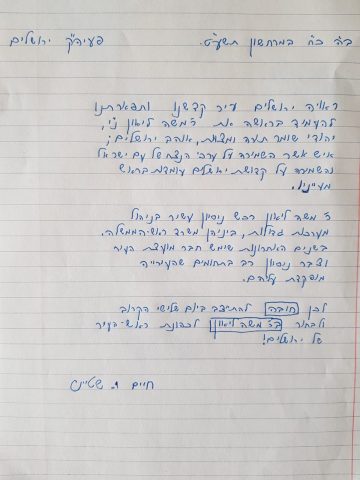 ב"ה כ"ח במרחשון תשע"ט. פעיה"ק ירושלים
ראויה ירושלים עיר קדשנו ותפארתנו
להעמיד בראשה את ר' משה ליאון ני',
יהודי שומר תורה ומצוות, אוהב ירושלים;
איש אשר השמירה על ערכי הנצח של עם ישראל
והשמירה על קדושת ירושלים עומדת בראש
מעייניו.
ר' משה ליאון רכש ניסיון עשיר בניהול
מערכות גדולות, ביניהן משרד ראש-הממשלה.
בשנים האחרונות שימש חבר מועצת העיר
וצבר ניסיון רב בתחומים שהעירייה
מופקדת עליהם.
לכן חובה להתייצב ביום שלישי הקרוב
ולבחור בר' משה ליאון לכהונת ראש-העיר
של ירושלים!
חיים י. שטיינר